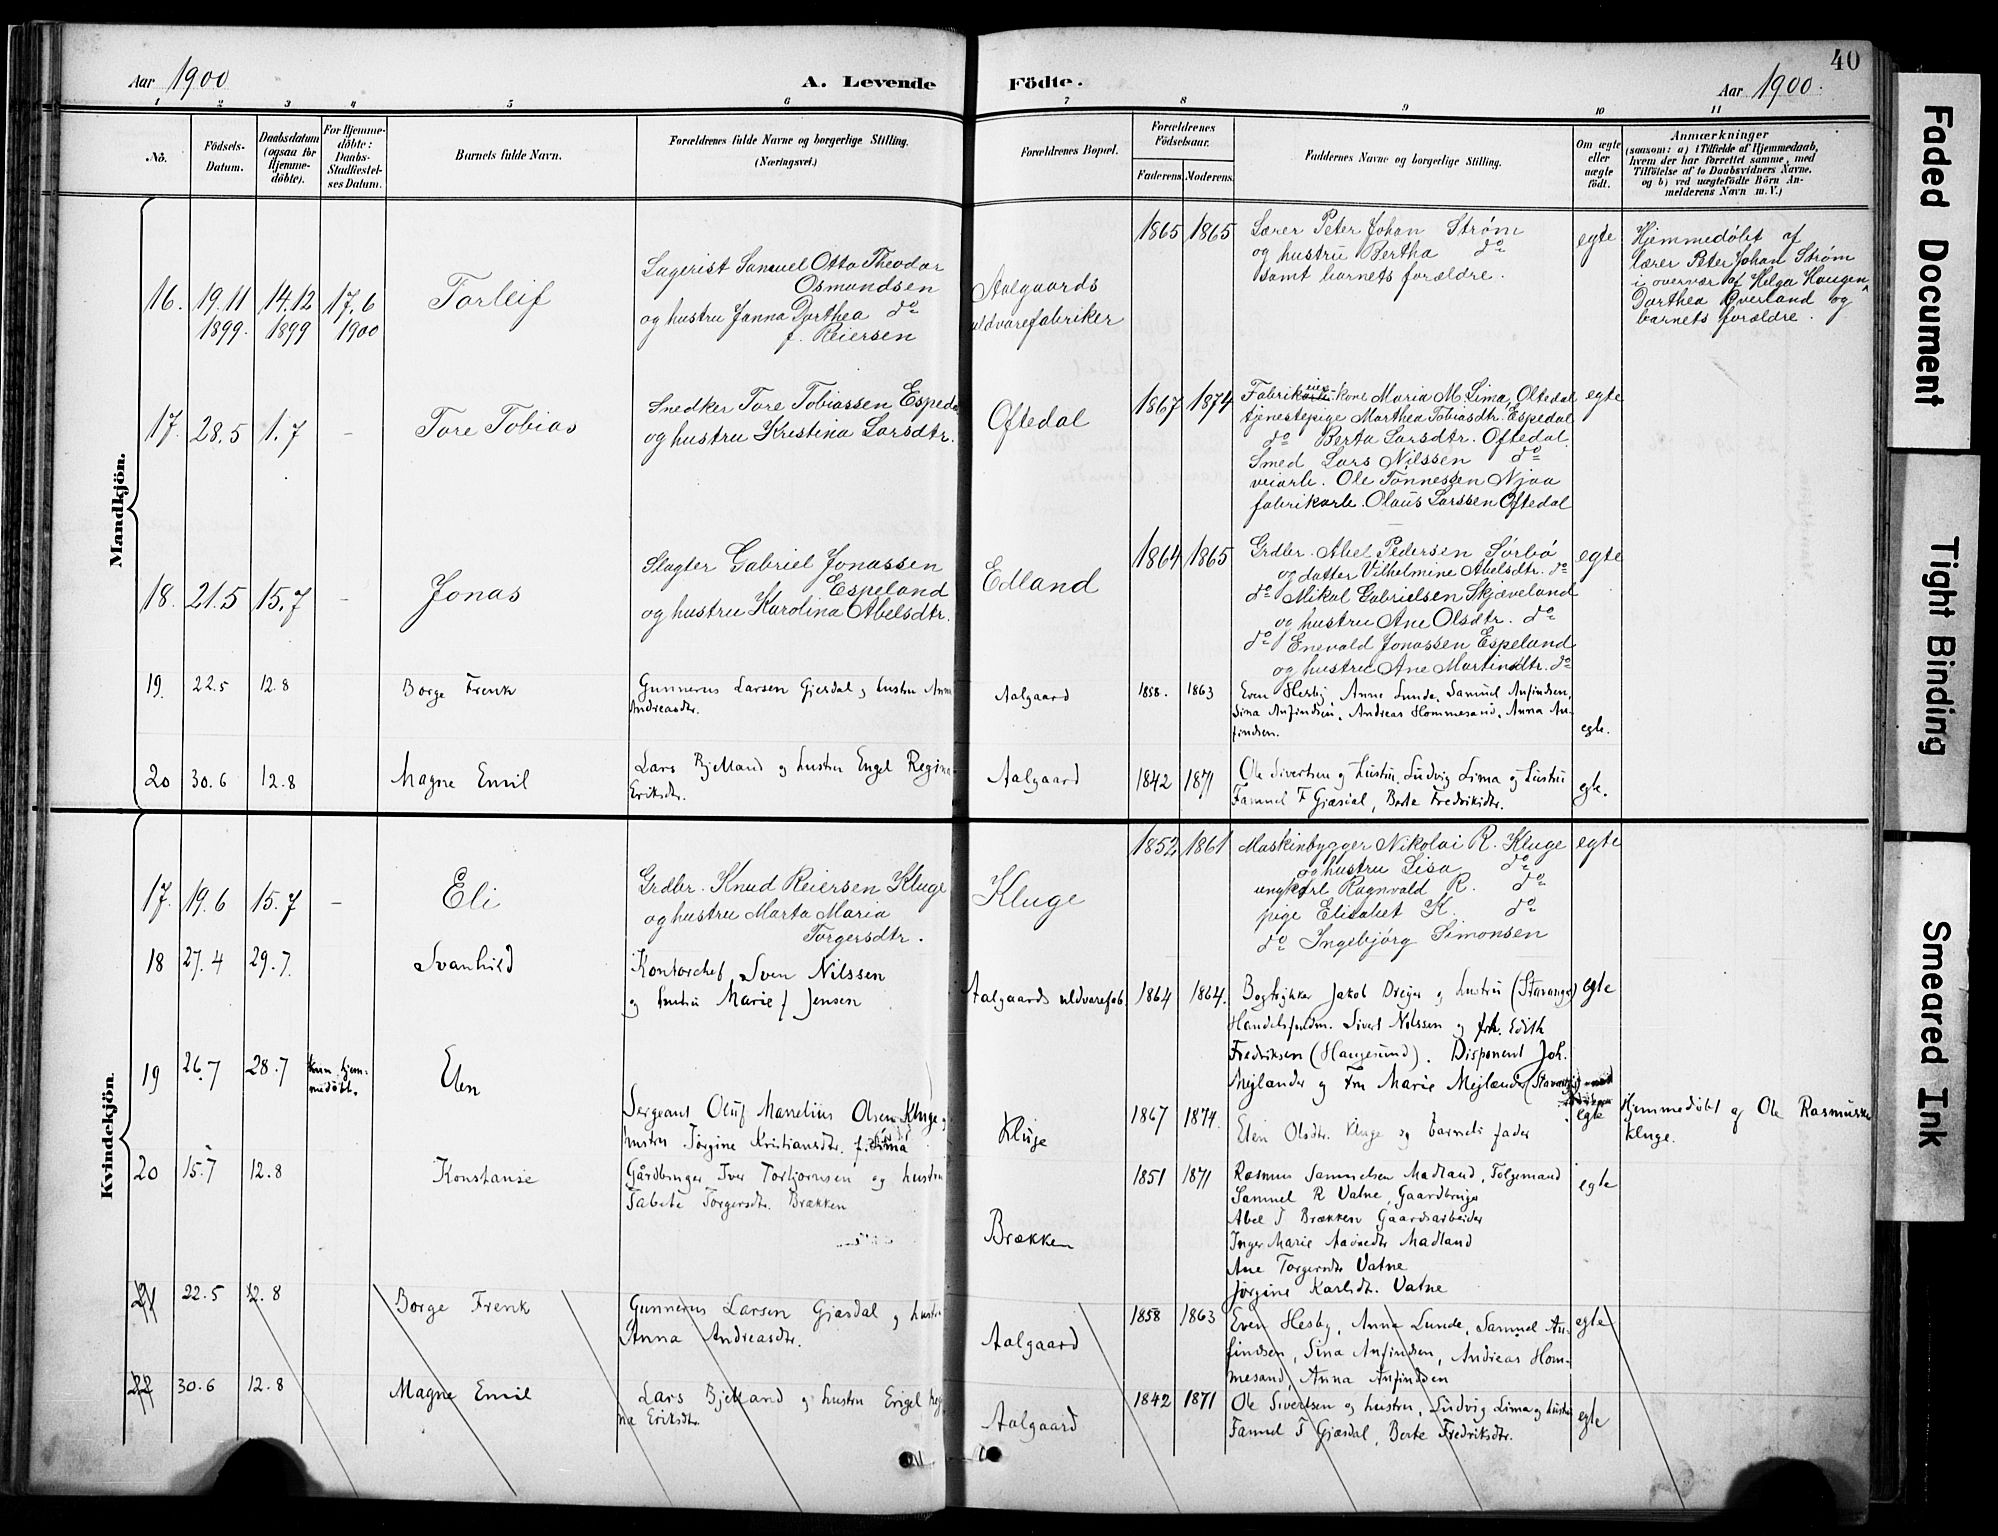 40
Aar 1900
A. Levende
Födte.
Aar 1900.
1 2 3 4 5 6 7 8 9 10 11
No.
Födsels-
Datum.
Daabsdatum
(ogsaa for
Hjemme-
döbte).
For Hjemme-
döbte:
Daabs-
Stadfæstel-
ses Datum.
Barnets fulde Navn.
Forældrenes fulde Navne og borgerlige Stilling.
(Næringsvei.)
Forældrenes Bopæl.
Forældrenes
Födselsaar.
Faderens.
Moderens.
Faddernes Navne og borgerlige Stilling.
Om ægte
eller
uægte
födt.
Anmærkninger
(saasom: a) i Tilfælde af Hjemmedaab,
hvem der har forrettet samme, med
Tilföielse af to Daabsvidners Navne,
og b) ved uægtefödte Börn An-
melderens Navn m. V.)
Mandkjön.
16.
19.11
1899.
14.12
1899
17.6
1900
Torleif
Lagerist Samuel Otto Theodor
Osmundsen
og hustru Janna Dorthea do
f. Reiersen
Aalgaards
uldvarefabriker
1865
1865
Lærer Peter Johan Strøm
og hustru Bertha do
samt barnets forældre.
egte
Hjemmedøbt af
lærer Peter Johan Strøm
i overvær af Helga Haugen,
Dorthea Øverland og
barnets forældre.
17.
28.5
1.7
-
Tore Tobias
Snedker Tore Tobiassen Espedal
og hustru Kristina Larsdtr.
Oftedal
1867
1874
Fabrikeier-kone Maria M Lima, Oftedal
tjenestepige Marthea Tobiasdtr. Espedal
do Berta Larsdtr. Oftedal.
Smed Lars Nilssen do
veiarb. Ole Tønnessen Njaa
fabrikarb. Olaus Larssen Oftedal
egte
18.
21.5
15.7
-
Jonas
Slagter Gabriel Jonassen
Espeland
og hustru Karolina Abelsdtr.
Edland
1864
1865
Grdbr. Abel Pedersen Sørbø
og datter Vilhelmine Abelsdtr. do
do Mikal Gabrielsen Skjæveland
og hustru Ane Olsdtr. do
do Enevald Jonassen Espeland
og hustru Ane Martinsdtr. do
egte
19.
22.5
12.8
Borge Frenk
Gunnerus Larsen Gjesdal og hustru Anna
Andreasdtr.
Aalgaard
1858.
1863
Even Hesby, Anne Lunde, Samuel Anfindsen,
Sina Anfindsen, Andreas Hommesand, Anna An-
findsen.
egte.
20
30.6
12.8
Magne Emil
Lars Bjelland og hustru Engel Regina
Eriksdtr.
Aalgaard
1842
1871
Ole Sivertsen og hustru, Ludvig Lima og hustru
Samuel T Gjæsdal, Berte Fredriksdtr.
egte.
Kvindekjön.
17.
19.6
15.7
-
Eli
Grdbr. Knud Reiersen Kluge
og hustru Marta Maria
Torgersdtr.
Kluge
1852
1861
Maskinbygger Nikolai R. Kluge
og hustru Lisa do
ungkarl Ragnvald R. do
pige Elisabet K. do
do Ingebjørg Simonsen
egte
18
27.4
29.7.
Svanhild
Kontorchef Sven Nilssen
og hustru Marie f Jensen
Aalgaards uldvarefab.
1864
1864.
Bogtrykker Jakob Dreyer og hustru (Stavanger)
Handelsfuldm. Sivert Nilssen og frk. Edith
Fredriksen (Haugesund). Disponent Joh.
Mejlænder og Fru Marie Mejlænder (Stavanger)
egte
19
26.7
28.7
Kun hjem-
medøbt.
Elen
Sergeant Oluf Manelius Olsen Kluge og
hustru Jørgine Kristiansdtr. f. Lima
Kluge
1867
1874.
Elen Olsdtr. Kluge og barnets fader
egte
Hjemmedøbt af Ole Rasmussen
Kluge.
20
15.7
12.8
Konstanse
Gårdbruger Iver Torbjørnsen og hustru
Tabete Torgersdtr. Brækken
Brækken
1851
1871
Rasmus Samuelsen Madland, Folgemand
Samuel R Vatne, Gaardbruger
Abel T Brækken Gaardsarbeider
Inger Marie Aavnedtr Madland
Ane Torgersdtr Vatne
Jørgine Karlsdt. Vatne
egte
21
22.5
12.8
Borge Frenk
Gunnerus Larsen Gjæsdal og hustru
Anna Andreasdtr.
Aalgaard
1858
1863
Even Hesby, Anna Lunde, Samuel An-
findsen, Sina Anfindsen, Andreas Hom-
mesand, Anna Anfindsen
egte
22
30.6
12.8
Magne Emil
Lars Bjelland og hustru Engel Regi-
na Eriksdtr.
Aalgaard
1842
1871
Ole Sivertsen og hustru, Ludvig Lima og hustru
Samuel T Gjæsdal, Berte Fredriksdtr.
egte
Faded Document
Tight Binding
Smeared Ink